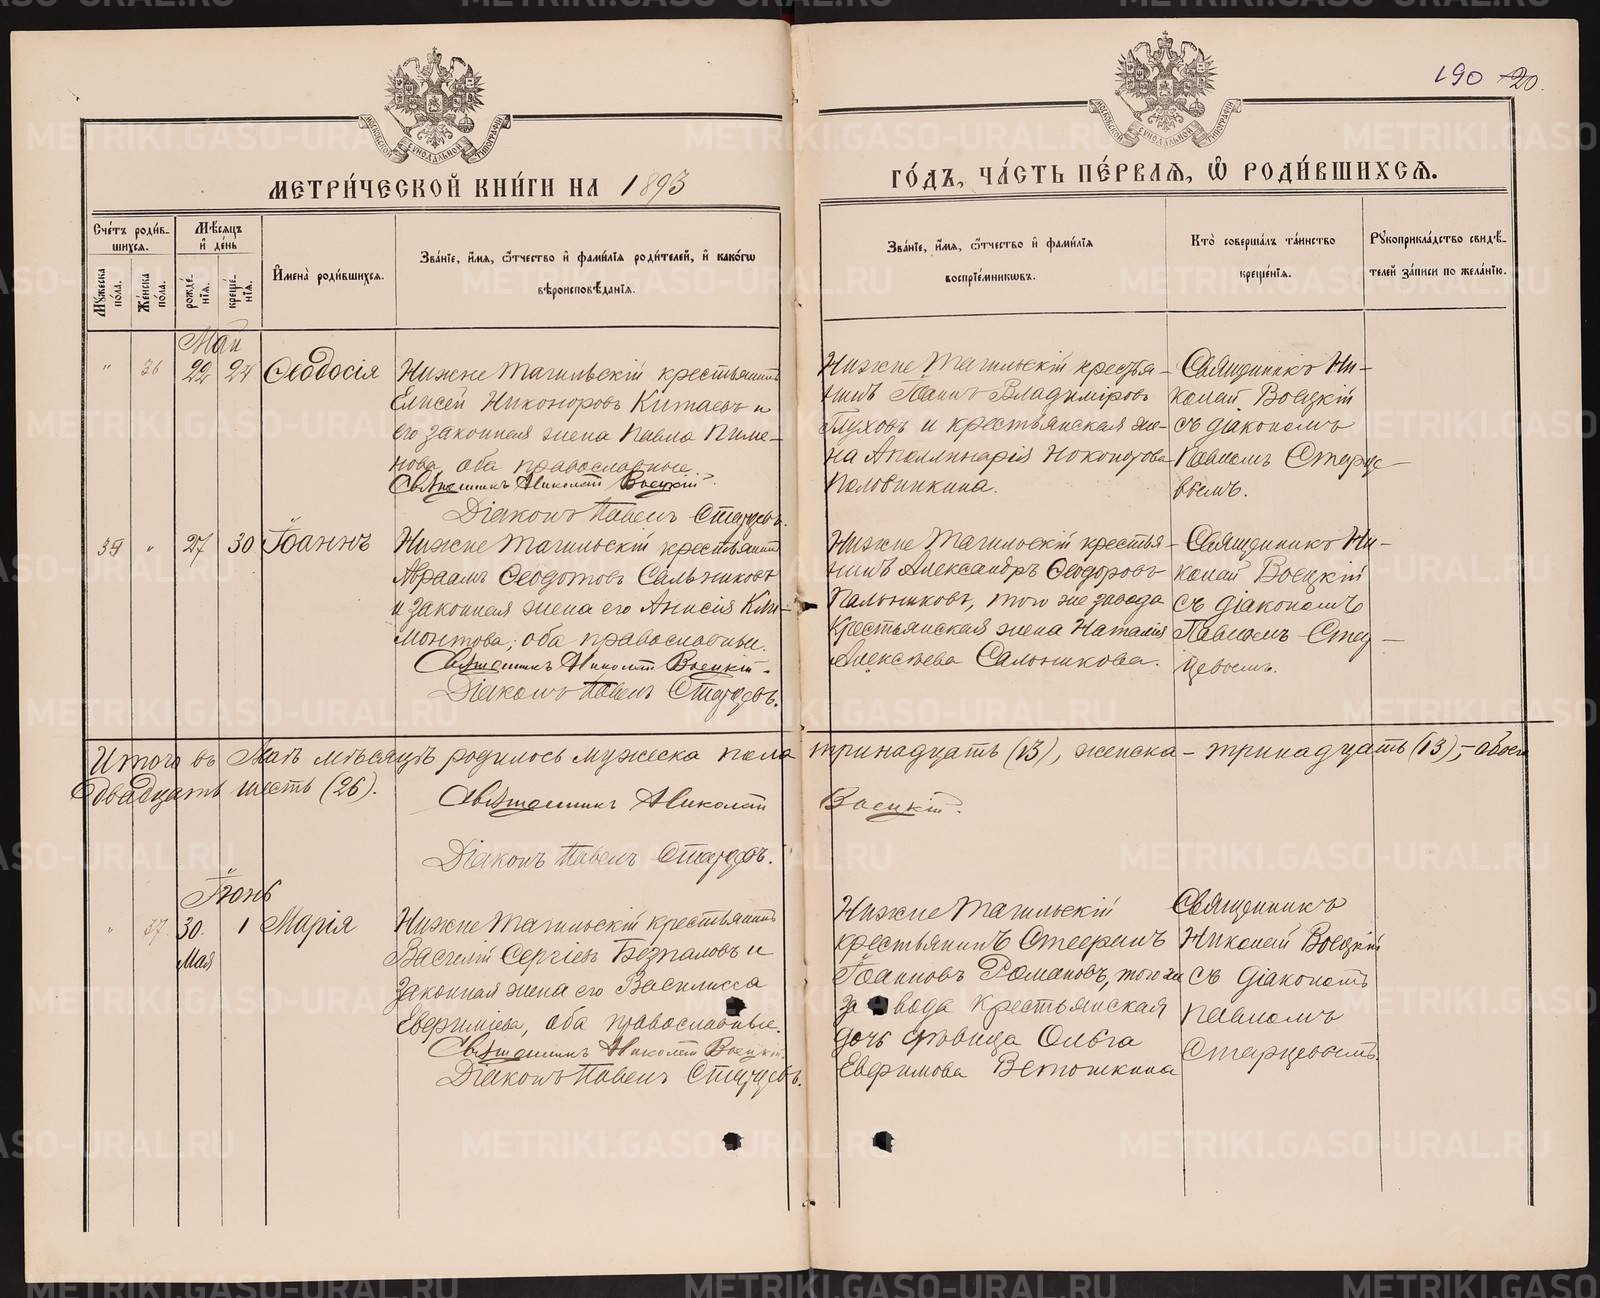 190 20.
МЕТРИ́ЧЕСКОЙ КНИ́ГИ НА 1893
ГО́ДЪ, ЧА́СТЬ ПЕ́РВАЯ, Ѡ РОДИ́ВШИХСЯ.
Сче́тъ роди́в-
шихся.
Му́жеска по́ла.
Же́нска по́ла.
Мѣ́сяцъ
и де́нь
рожде́-
нія.
креще́-
нія.
И́мена роди́вшихся.
Зва́ніе, и́мя, ѻ҆́тчество и фами́лія роди́телей, и како́гѡ
вѣроисповѣ́данія.
Зва́ніе, и́мя, ѻ҆́тчество и фами́лія
воспріе́мниковъ.
Кто̀ соверша́лъ та́инство
креще́нія.
Рукоприкла́дство свидѣ́-
телей за́писи по жела́нію.
Май
" 36 22 24 Ѳеодосія
Нижне Тагильскій крестьянинъ
Елисей Никоноровъ Китаевъ и
его законная жена Павла Пиме-
нова, оба православные.
Священникъ Николай Воецкій.
Діаконъ Павелъ Старцевъ.
Нижне Тагильскій кресть-
янинъ Іоаннъ Владиміровъ
Глуховъ и крестьянская же-
на Аполлинарія
Половинкина.
Священникъ Ни-
колай Воецкій
съ діакономъ
Павломъ Старце-
вымъ.
" 27 30 Іоаннъ
Нижне Тагильскій крестьянинъ
Авраамъ Ѳеодотовъ Сальниковъ
и законная жена его Анисія Кли-
монтова, оба православные.
Священникъ Николай Воецкій.
Діаконъ Павелъ Старцевъ.
Нижне Тагильскій крестья-
нинъ Александръ Ѳеодоровъ
Пальниковъ, того же завода
крестьянская жена Наталія
Алексѣева Сальникова.
Священникъ Ни-
колай Воецкій
съ діакономъ
Павломъ Стар-
цевымъ.
Итого въ Маѣ мѣсяцѣ родилось мужеска пола тринадцать (13), женска – тринадцать (13), – обоего
двадцать шесть (26).
Священникъ Николай Воецкій.
Діаконъ Павелъ Старцевъ.
Іюнь
" 37 30. 1 Марія
Мая
Нижне Тагильскій крестьянинъ
Василій Сергіевъ Безпаловъ и
законная жена его Василисса
Евфиміева, оба православные.
Священникъ Николай Воецкій.
Діаконъ Павелъ Старцевъ.
Нижне Тагильскій
крестьянинъ
Іоанновъ Романовъ, того же
завода крестьянская
дочь дѣвица Ольга
Евфимова Ветошкина
Священникъ
Николай Воецкій
съ діакономъ
Павломъ
Старцевымъ.
METRIKI.GASO-URAL.RU